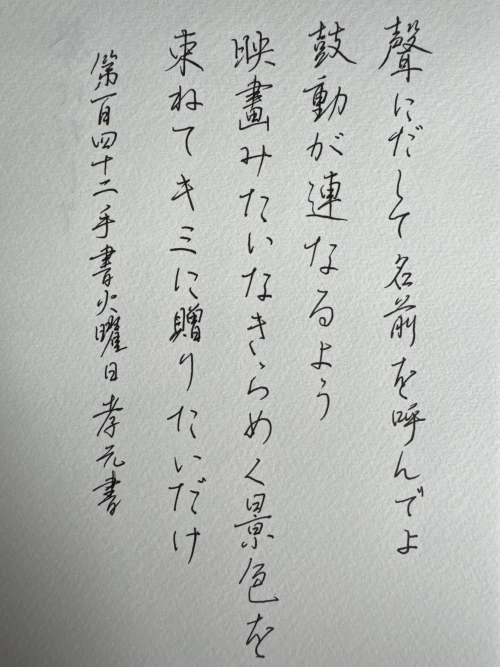 聲にだして名前を呼んでよ
鼓動が連なるよう
映畫みたいなきらめく景色を
束ねてキミに贈りたいだけ
第一百四十二手書火曜日孝元書